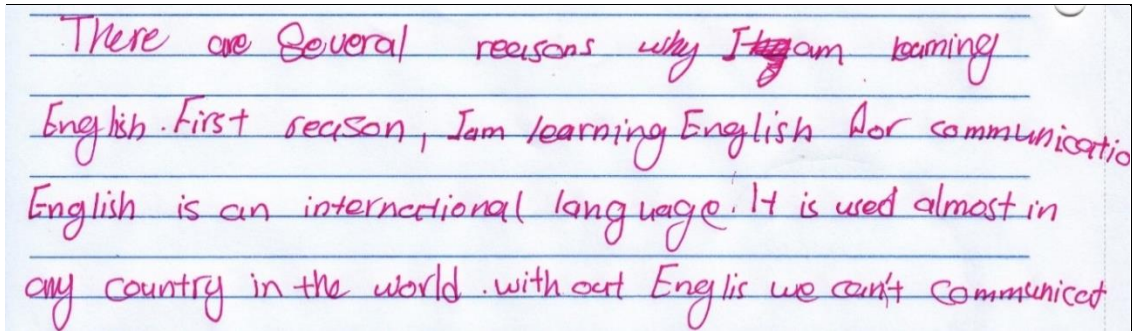 There are several reasons why I am learning
English. First reason, I am learning English for communicatio
English is an international language. It is used almost in
any country in the world. with out Englis we can't communicat